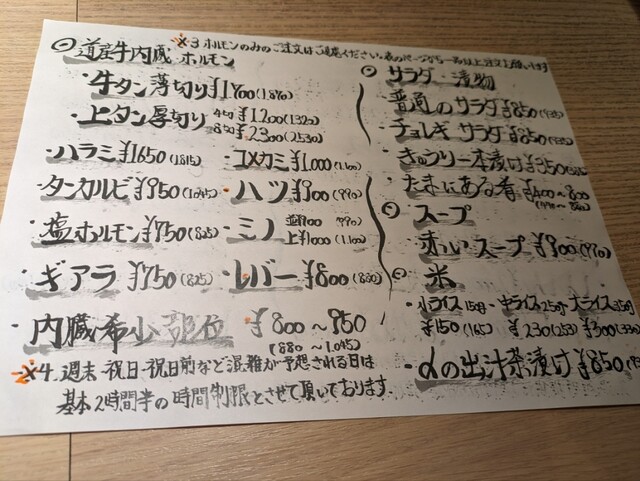 ※3 ホルモンのみのご注文はご遠慮ください。
道産牛内臓 ホルモン
・牛タン薄切り ¥1700(1870)
・上タン厚切り 4切 ¥1200(1320)
8切 ¥2300(2530)
・ハラミ ¥1650(1815)
・コメカミ ¥1000(1,100)
・タンカルビ ¥950(1045)
・ハツ ¥900(990)
・塩ホルモン ¥750(825)
・ミノ 並¥900(990)
上¥1000(1,100)
・ギアラ ¥750(825)
・レバー ¥800(880)
・内臓希少部位 ¥800〜950
(880〜1,045)
※4. 週末・祝日・祝日前など混雑が予想される日は
基本2時間半の時間制限とさせて頂いております。
サラダ・漬物
・普通のサラダ ¥850(935)
・チョレギサラダ ¥850(935)
・きゅうり一本漬け ¥350
・たまにある香 ¥400〜800
スープ
・赤いスープ ¥900(990)
米
・小ライス150g ・中ライス250g ・大ライス350g
¥150(165) ¥230(253) ¥300(330)
・〆の出汁茶漬け ¥850